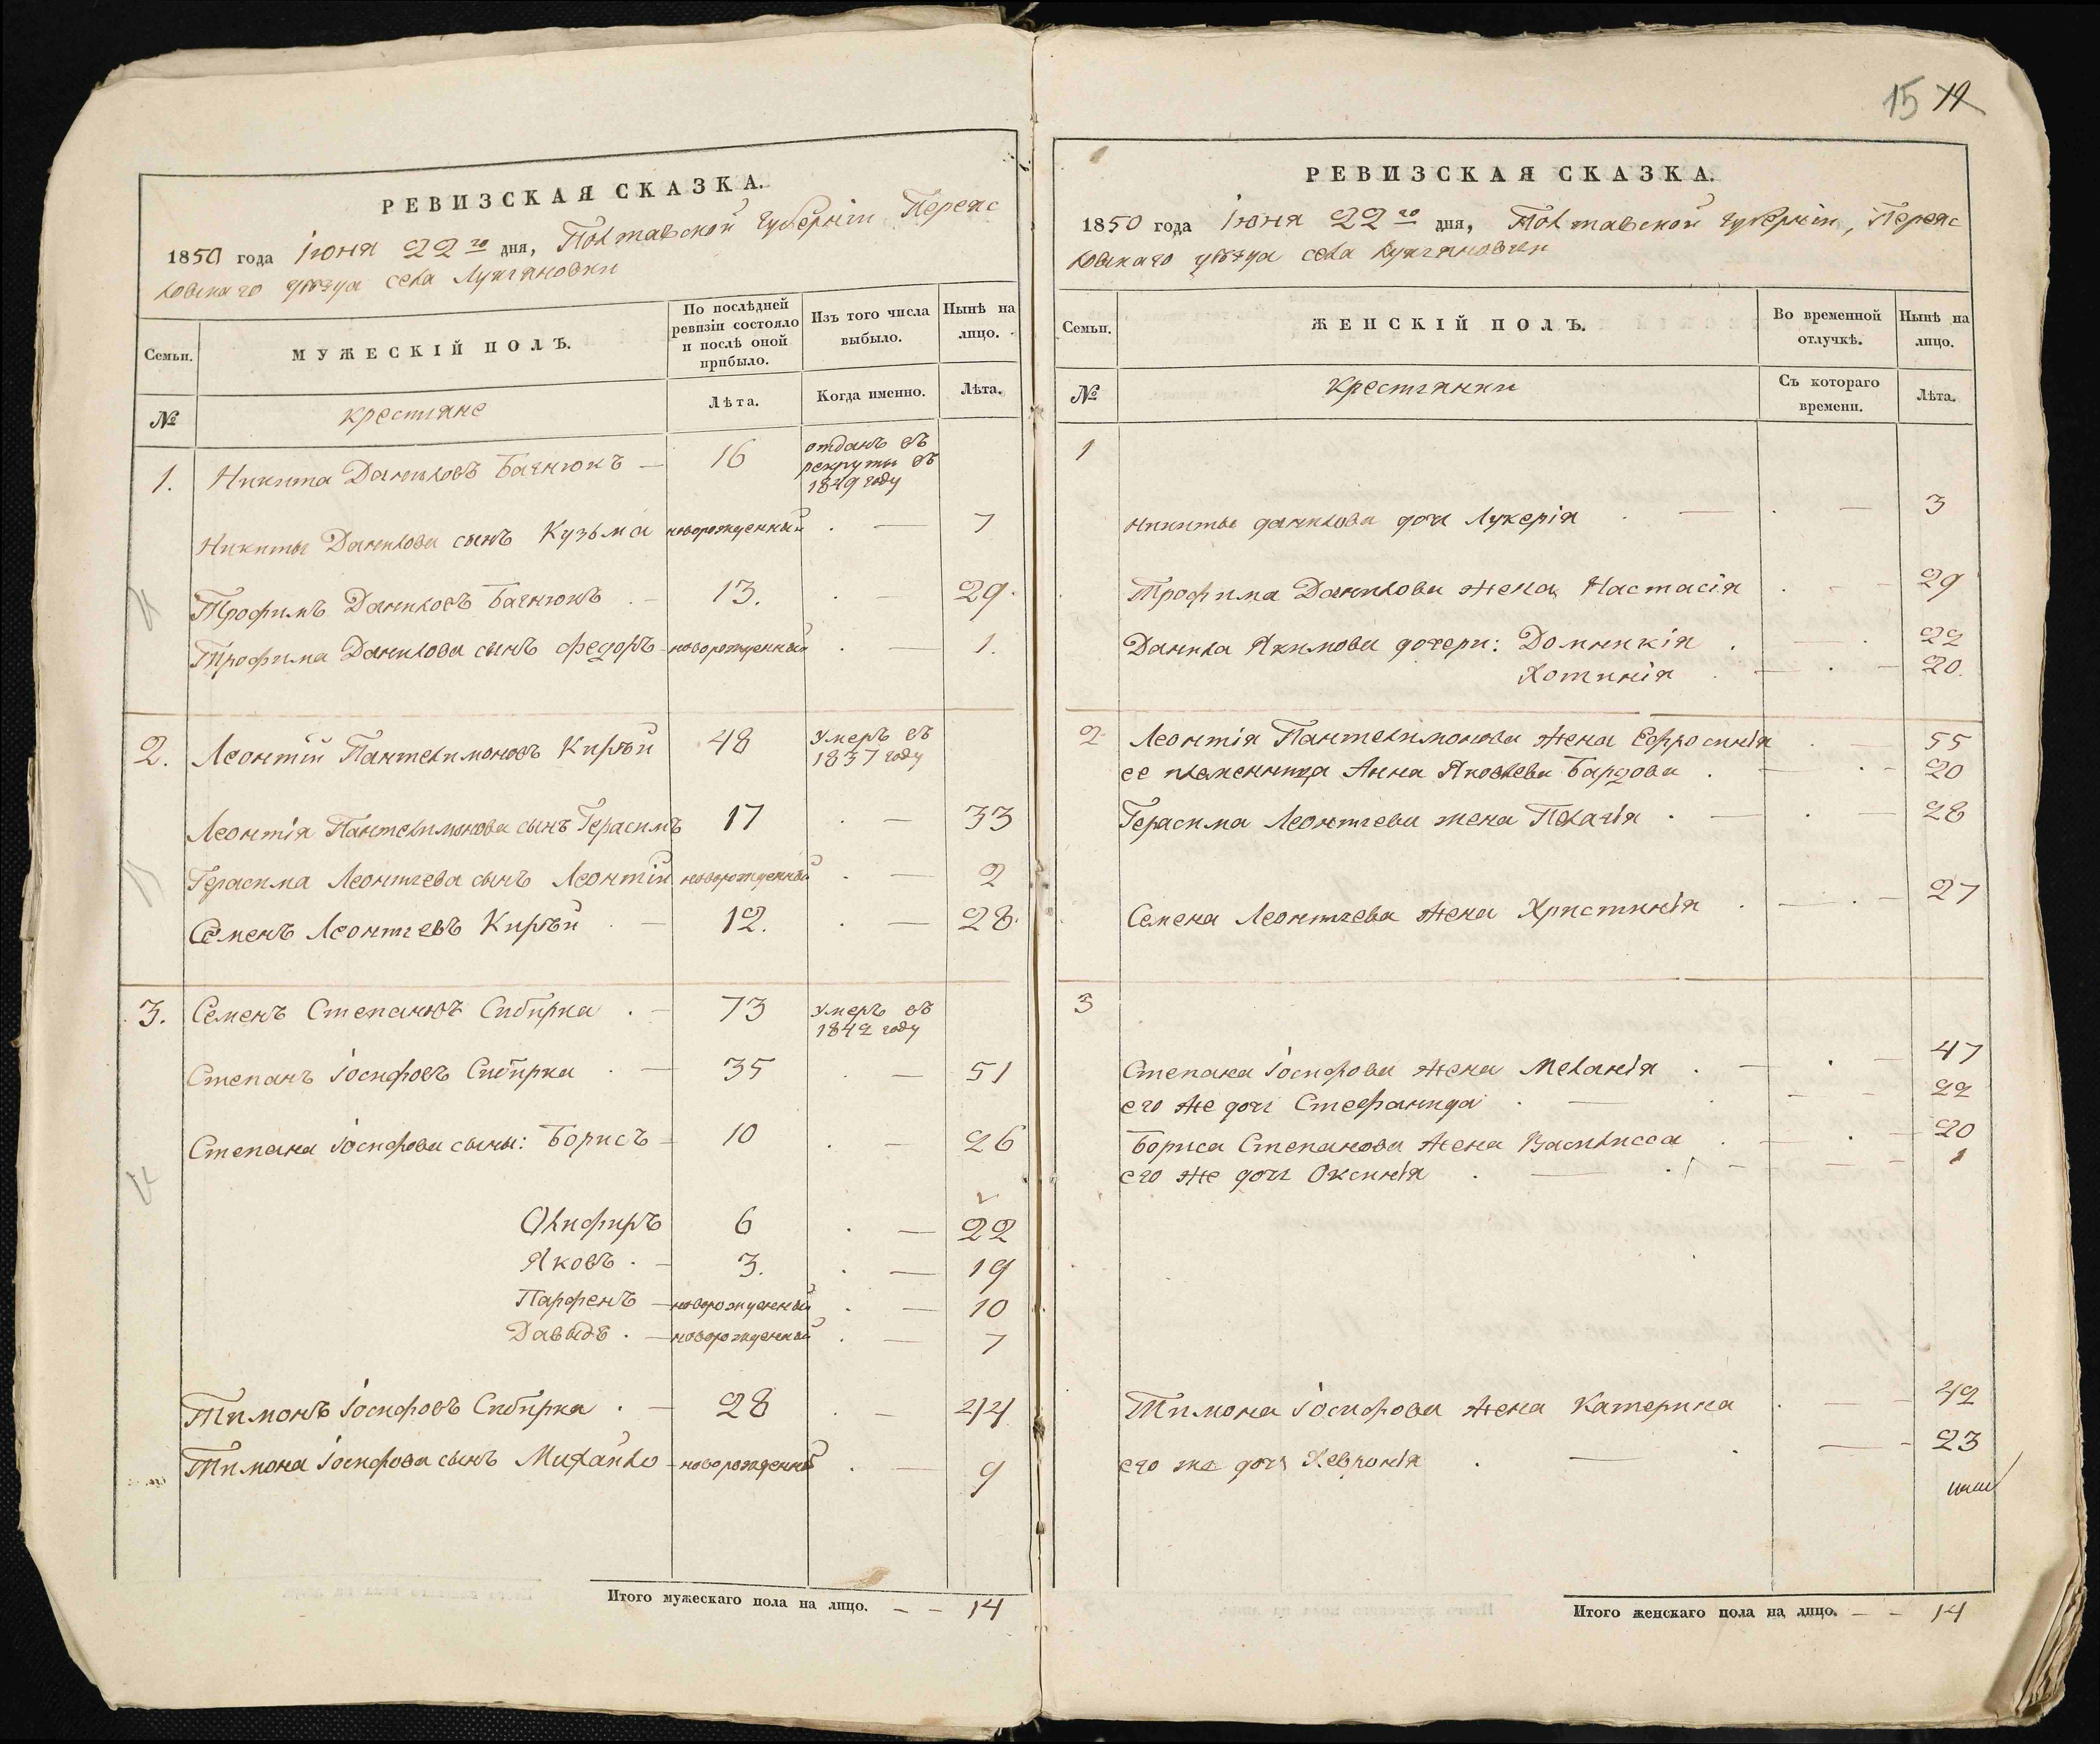 15 12
РЕВИЗСКАЯ СКАЗКА.
1850 года Іюня 22го дня, Полтавской Губерніи Переяс
ловскаго уѣзда села Лукьяновки
Семьи.
МУЖЕСКІЙ ПОЛЪ.
По послѣдней ревизіи состояло и послѣ оной прибыло.
Изъ того числа выбыло.
Нынѣ на лицо.
№
крестьяне
Лѣта.
Когда именно.
Лѣта.
1. Никита Даниловъ Бачнюкъ — 16 отданъ въ рекруты въ 1849 году
Никиты Данилова сынъ Кузьма новорожденный . — 7
Трофимъ Даниловъ Бачнюкъ . — 13. . — 29.
Трофима Данилова сынъ Федоръ новорожденный . — 1.
2. Леонтій Пантелимоновъ Кирѣй 48 умеръ въ 1837 году
Леонтія Пантелимонова сынъ Герасимъ 17 . — 33
Герасима Леонтьева сынъ Леонтій новорожденный . — 2
Семенъ Леонтьевъ Кирѣй . — 12. . — 28.
3. Семенъ Степановъ Сибирка . — 73 умеръ въ 1842 году
Степанъ Іосифовъ Сибирка . — 35 . — 51
Степана Іосифова сыны: Борисъ — 10 . — 26
Олифиръ 6 . — 22
Яковъ . — 3. . — 19
Парфенъ — новорожденный . — 10
Давыдъ . — новорожденный . — 7
Тимонъ Іосифовъ Сибирка . — 28 . — 44
Тимона Іосифова сынъ Михайло — новорожденный . — 9
Итого мужескаго пола на лицо. — — 14
РЕВИЗСКАЯ СКАЗКА.
1850 года Іюня 22го дня, Полтавской губерніи, Переяс
ловскаго уѣзда села Лукьяновки
Семьи.
ЖЕНСКІЙ ПОЛЪ.
Во временной отлучкѣ.
Нынѣ на лицо.
№
Крестьянки
Съ котораго времени.
Лѣта.
1
Никиты Данилова дочь Лукерія . — . — 3
Трофима Данилова жена Настасія . — — 29
Данила Якимова дочери: Домникія . — . 22
Хотинія . — . — 20.
2 Леонтія Пантелимонова жена Ефросинія . — 55
ее племенница Анна Яковлева Бардова . — . — 20
Герасима Леонтьева жена Пелагія . — . — 28
Семена Леонтьева жена Христинія . — . — 27
3
Степана Іосифова жена Меланія . — . — 47
его же дочь Стефанида . — . — — 22
Бориса Степанова жена Василиса . — . — 20
его же дочь Оксинія . — . — — — 1
Тимона Іосифова жена Катерина . — — 42
его же дочь Хевронія . — . — — 23
Итого женскаго пола на лицо. — — 14